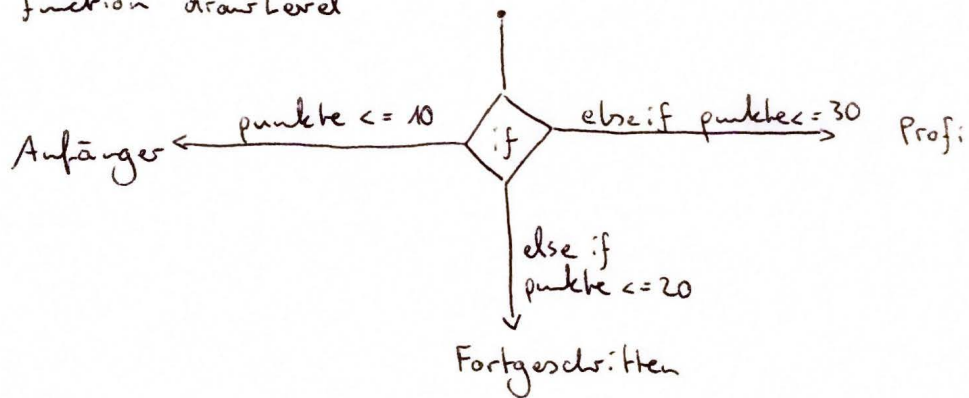 function drawLevel
punkte <= 10
if
else if punkte <= 30
Anfänger
Profi
else if
punkte <= 20
Fortgeschritten